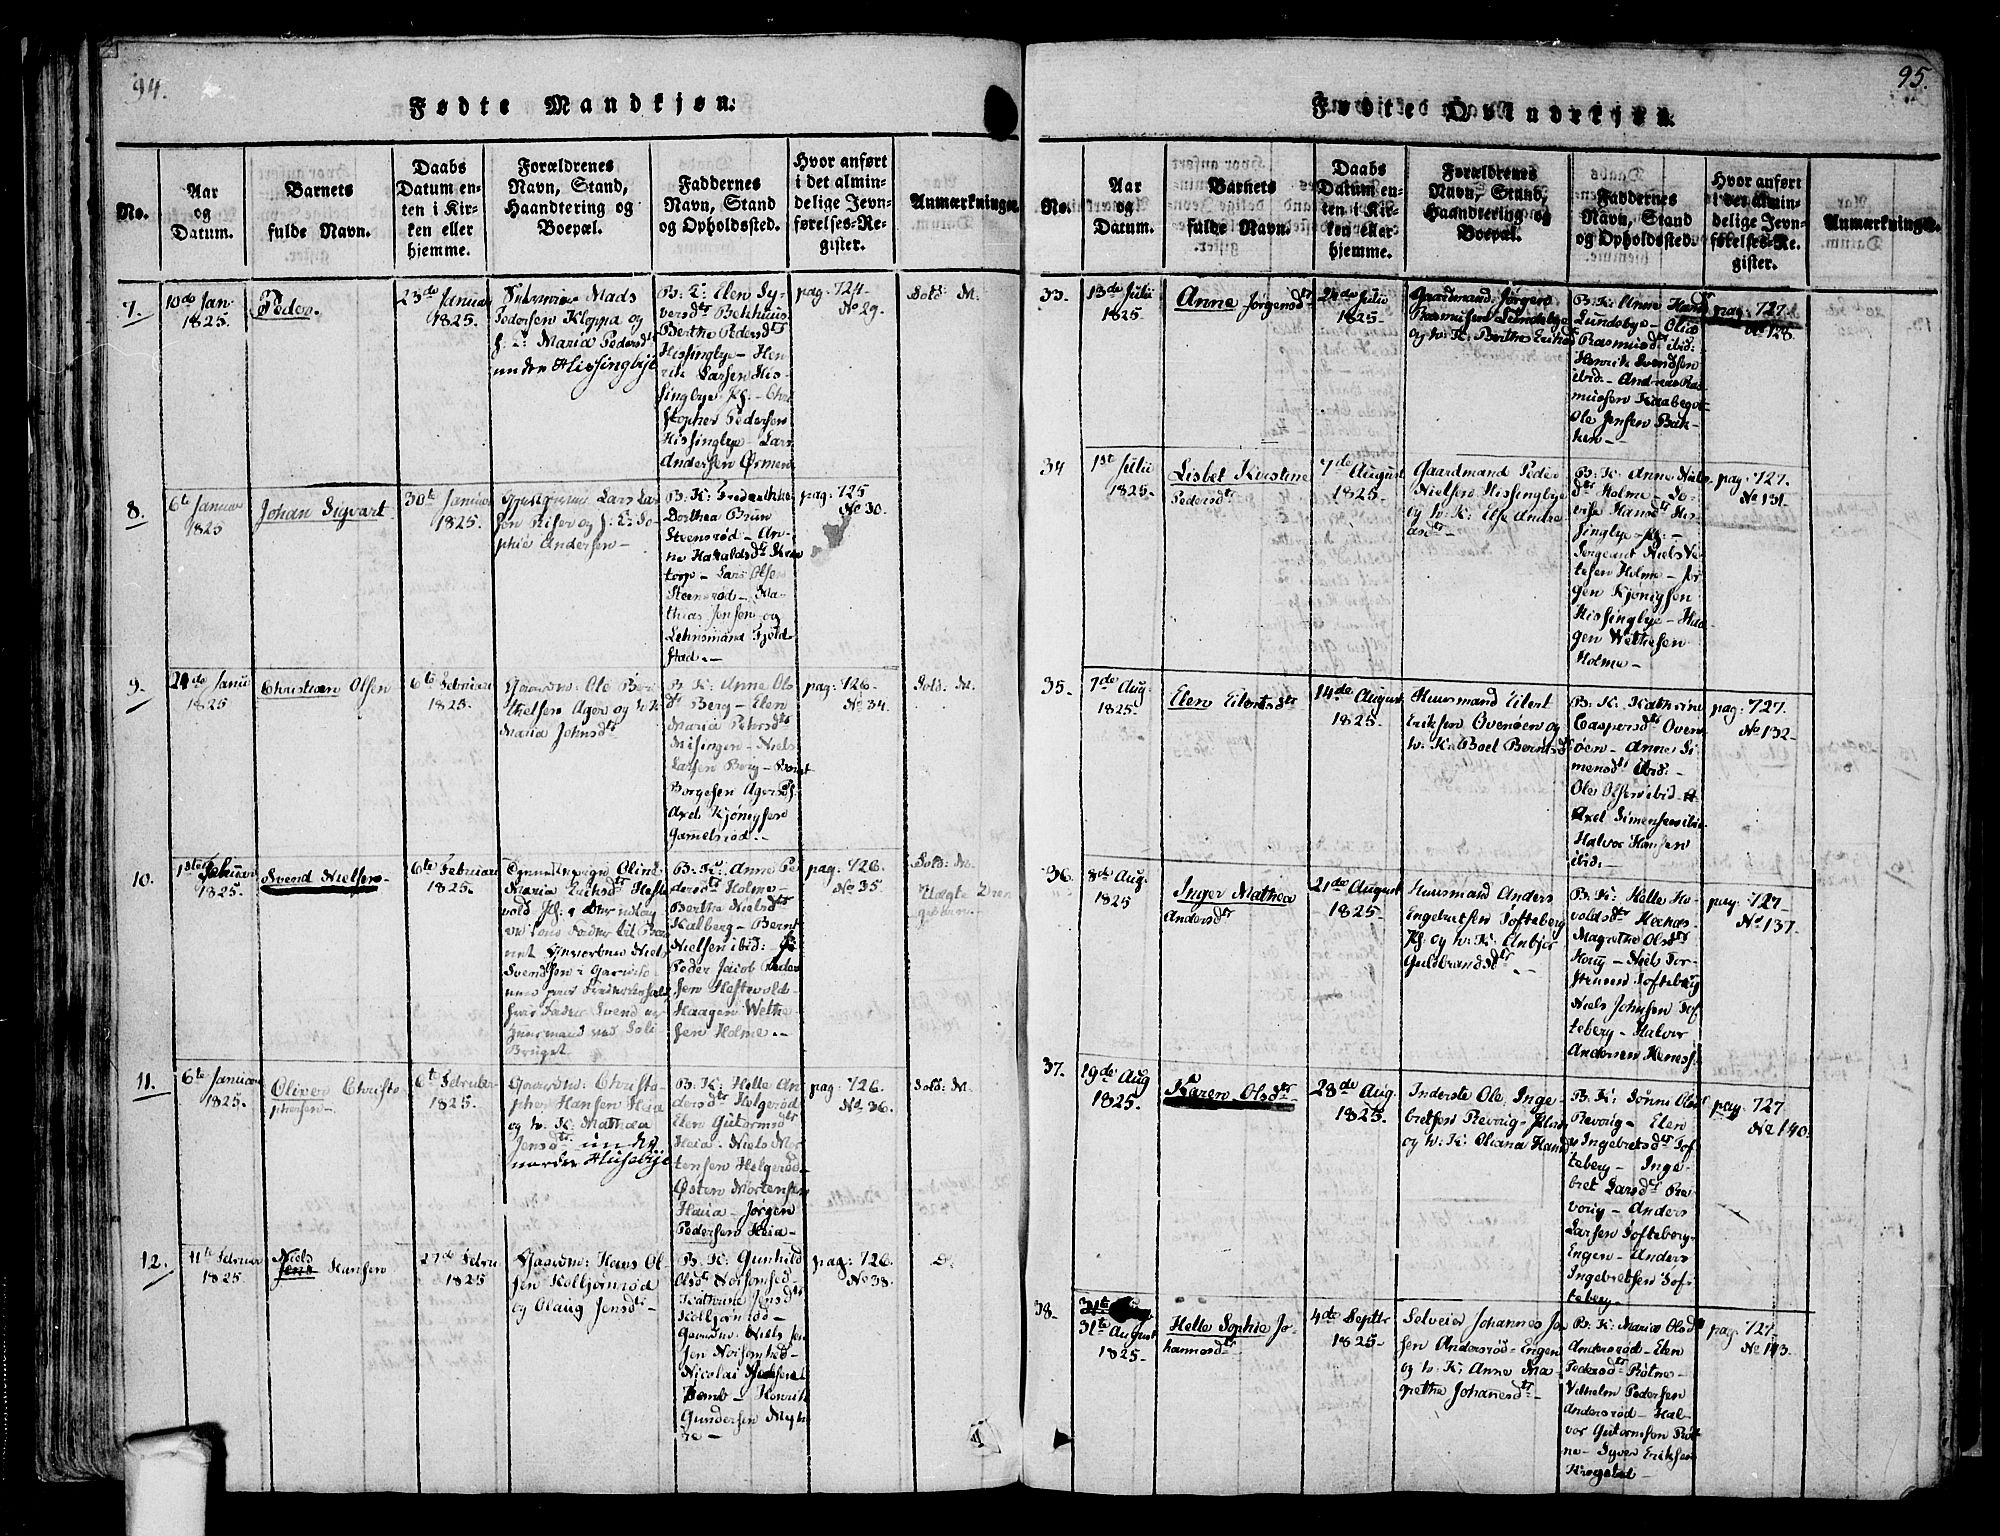 94.
Fødte Mandkjøn.
No.
Aar
og
Datum.
Barnets
fulde Navn.
Daabs
Datum en-
ten i Kir-
ken eller
hjemme.
Forældrenes
Navn, Stand,
Haandtering og
Boepæl.
Faddernes
Navn, Stand
og Opholdssted.
Hvor anført
i det almin-
delige Jevn-
førelses-Re-
gister.
Anmærkninger.
7.
10de Jan-
1825.
Peder.
23de Januar
1825.
Mads
Pedersen Kloppa og
Maria Pedersdtr
under Hissingbye
B: E: Elen Sy-
versdtr Bekhuus
Berthe Pedersdtr
Hissingbye - Hen-
rik Larsen His-
singbye - Chri
stopher Pedersen
Hissingbye - Lars
Andersen Ørmen
pag: 724-
No 29.
Sold: M.
8.
6te Januar
1825
Johan Sigvart
30te Januar
1825.
Lars Lar
sen og So-
phie Andersen -
B: K: Frederikke
Dorthea Brun
Steensrød - An-
ne Haraldsdtr
torp - Lars Olsen
Steensrød - Ma-
thias Jensen og
Lehnsmand Fjeld-
stad.-
pag: 725
No 30.
9.
24de Janu
1825
Christian Olsen
6te Februar
1825.
Gaardm: Ole Ber-
thelsen Ager og h: K:
Maria Johnsdtr
B: K: Anne Ols
dtr Berg - Elen
Maria Pehrsdtr
Missingen - Niels
Larsen Berg - Bernt
Borgesen Ager
Axel Kjönigsen
Gamelsrød.-
pag: 726-
No 34.
Sold: M.
10.
1ste Februar
1825.
Svend Nielsen
6te Februar
1825.
Oline
Maria Eriksdtr Heste
vold
Niels
Svendsen i
Svend
Huusmand ved Soli
Bruget.
B: K: Anne Pe
dersdtr Holme-
Berthe Nielsdtr
Kalberg - Bernt
Nielsen ibid:
Peder Jacob Peder
sen Hestevold-
Haagen Wethe
sen Holme.-
pag: 726.
No 35.
Sold: M.
Uægte
11.
6te Januar
1825.
Oliver Christo
phersen-
6te Februar
1825.
Gaardm: Christo-
pher Hansen Heia
og h: K: Mathea
Jensdtr under
nordre Husebye
B: K: Helle An
dersdtr Helgerød
Elen Gutormsdtr
Heia - Niels Mor
tensen Helgerød-
Østen Mortensen
Heia - Jørgen
Pedersen Heia-
pag: 726.
No 36.
Sold: M.
12.
11te Februar
1825.
Niels
Jens Hansen
27de Febru
1825
Gaardm: Hans Ol-
sen Kolbjørnrød
og Olaug Jensdtr-
B: K: Gunhild
Olsdtr Noisomhed
Kathrine Jensdtr
Kolbjørnrød-
Gaardm: Niels Jen
sen Noisomhed-
Nicolai
Henrik
Gundersen Myh
re -
pag: 726.
No 38.
D.
95.
Fødte Qvindekjøn.
No.
Aar
og
Datum.
Barnets
fulde Navn.
Daabs
Datum en-
ten i Kir-
ken eller
hjemme.
Forældrenes
Navn, Stand,
Haandtering og
Boepæl.
Faddernes
Navn, Stand
og Opholdssted.
Hvor anført
i det almin-
delige Jevn-
førelses-Re-
gister.
Anmærkninger.
33.
13de Julii
1825
Anne Jörgensdtr
24de Julii
1825
Gaardmand Jørgen
Rasmusen Lundebye
og h: K: Berthe Eriksd
B: K: Anne Hansd
Lundebye - Olia
Rasmusdtr ibid:
Henrik Svendsen
ibid: - Andreas Ras
musen Kaabeqvt
Ole Jensen Bak-
ken -
pag: 727.
No 128.
34
1ste Julii
1825.
Lisbet Kirstine
Pedersdtr
7de August
1825.
Gaardmand Peder
Nielsen Hissingbye
og h: K: Else Andre
asdtr-
B: K: Anne Niels
dtr Holme - Lo-
vise Hansdtr His-
singbye -
Sergeant Niels Ve-
tesen Holme - Jør
gen Kjønigsen
Hissingbye - Haa
gen Wethesen
Holme -
pag: 727.
No 131.
35.
7de Aug:
1825.
Elen Eilertsdtr
14de August
1825.
Huusmand Eilert
Eriksen Ovenøen og
h: K: Boel Berntsdtr
B: K: Kathrine
Caspersdtr Oven-
øen - Anne Si-
mensdtr ibid: -
Ole Olsen ibid -
Axel Simensen ibid
Halvor Hansen
ibid: -
pag: 727.
No 132-
36.
8de Aug:
1825
Inger Mathea
Andersdtr
21de August
1825.
Huusmand Anders
Engebretsen Tofteberg
og h: K: Anbjør
Guldbrandsdtr.-
B: K: Helle Ho
voldsdtr Heenæs-
Magrethe Olsdtr
Houg - Niels Tor-
stensen Tofteberg
Niels Johnsen Tof-
teberg - Halvor
Andersen Henæss
pag: 727
No 137.
37.
19de Aug
1825.
Karen Olsdtr
28de Aug:
1825.
Inderste Ole Inge-
bretsen Revoug -
og h: K: Oleana Hansd
B: K: Sønni Olsd
Revoug - Elen
Ingebretsdtr Tof-
teberg - Inge-
bret Larsdtr Re-
voug - Anders
Larsen Tofteberg-
Engen - Anders
Ingebretsen Tof-
teberg.
pag: 727
No 140.
38.
31te August
1825.
Helle Sophie Jo-
hannesdtr
4de Septbr
1825.
Selveier Johannes Jen
sen Andersrød-Engen
og h: K: Anne Ma-
grethe Johanesdtr -
B: K: Maria Olsd
Andersrød - Elen
Pedersdtr Rolne -
Vilhelm Pedersen
Andersrød - Hal-
vor Gutormsen Rol
ne - Syver Eriksen
Krogstad -
pag: 727-
No 143.